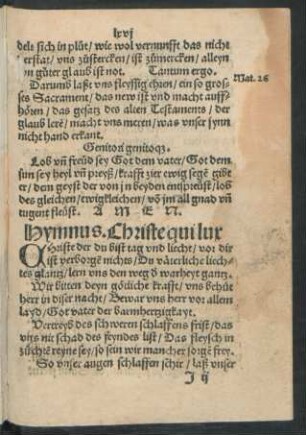 lxvj
delt sich in plůt/ wie wol vernunfft das nicht
erstat/ vns zůstercken/ ist zůmercken/ alleyn
in gůter glaub ist not. Tantum ergo.
Mat. 26
Darumb laßt vns fleyssig ehren/ ein so gros-
ses Sacrament/ das new ist vnd macht auff-
hören/ das gesatz des alten Testaments/ der
glaub lere/ macht vns meren/ was vnser synn
nicht hand erkant.
Genitori genitoqʒ.
Lob vñ freüd sey Got dem vater/ Got dem
sun sey heyl vñ preyß/ krafft zier ewig segē gib
er/ dem geyst der von jn beyden entspreüßt/ lob
des gleichen/ ewigkleichen/ võ jm all gnad vñ
tugent fleüßt. A M E N.
Hymnus. Christe qui lux
CHriste der du bist tag vnd liecht/ vor dir
ist verborgē nichts/ Du våterliche liech-
tes glantz/ lern vns den weg d warheyt gantz.
Wir bitten deyn götliche krafft/ vns behüt
herr in diser nacht/ Bewar vns herr vor allem
layd/ Got vater der barmhertzigkayt.
Vertreyb des schweren schlaffens frist/ das
vns nit schad des feyndes list/ Das fleysch in
züchtē reyne sey/ so sein wir mancher sorgē frey.
So vnser augen schlaffen schir/ laß vnser
J ij